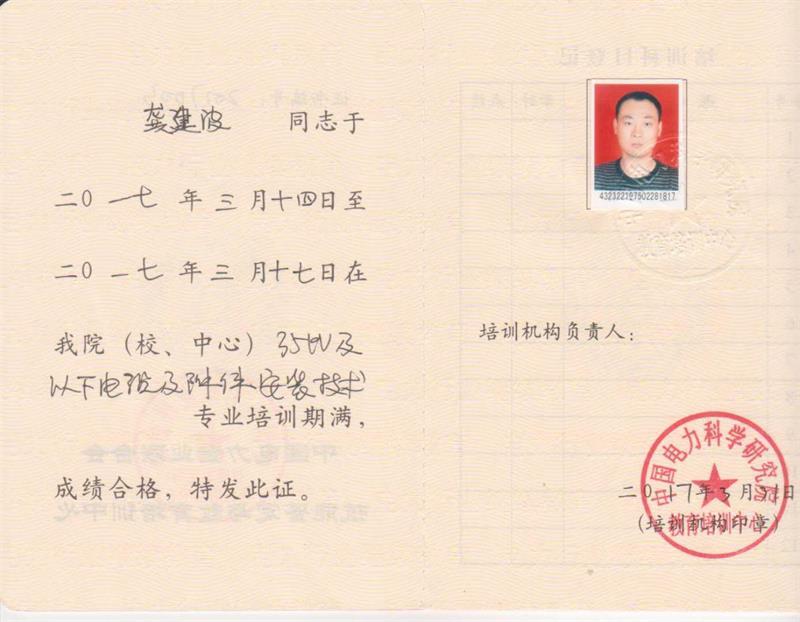 龚建波 同志于
二〇一七年三月十四日至
二〇一七年三月十七日在
我院（校、中心）35kV及
以下电缆及附件安装技术
专业培训期满，
成绩合格，特发此证。
432322197502281817
培训机构负责人：
中国电力科学研究院
教育培训中心
二〇17年3月31日
（培训机构印章）